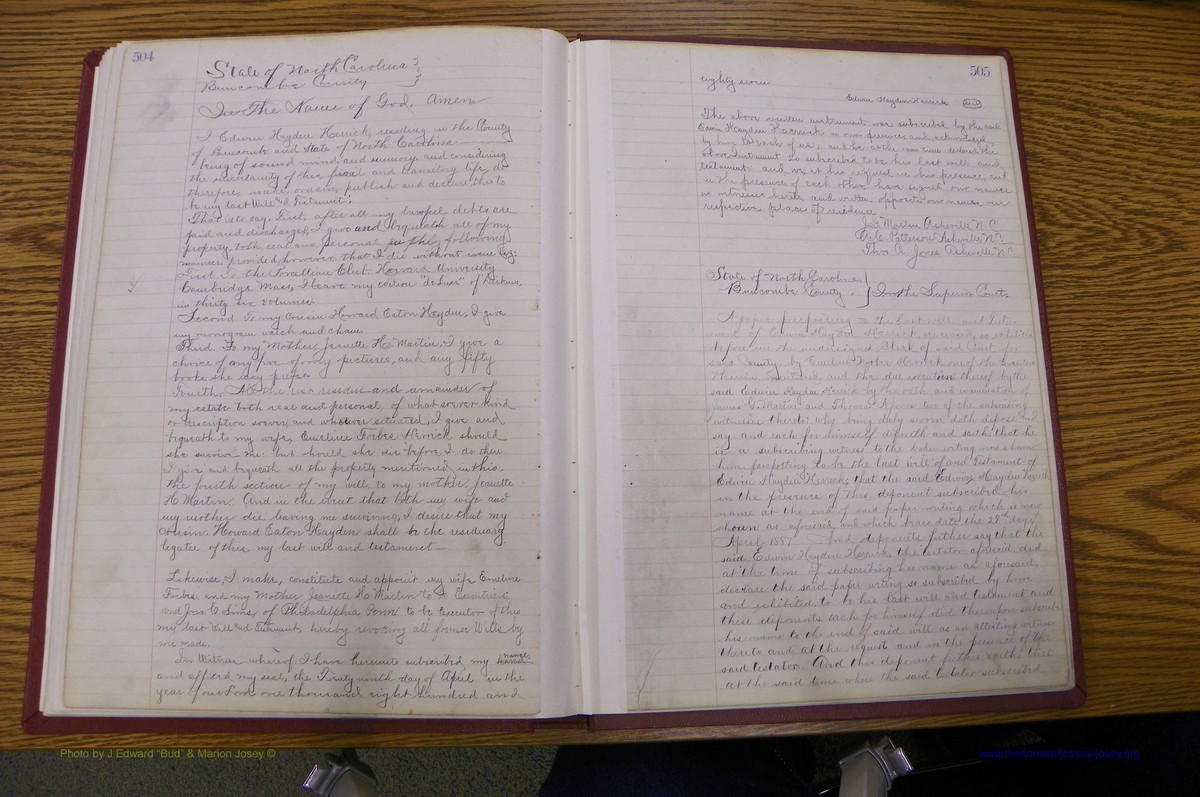 504
State of North Carolina
Buncombe County
In The Name of God, Amen
I Edwin Hayden Herrick, residing in the County
of Buncombe and State of North Carolina
being of sound mind, and memory, and considering
the uncertainty of this frail and transitory life, do
therefore, make ordain, publish and declare, this to
be my last Will and Testament:
That is to say: First, after all my lawful debts are
paid and discharged, I give and bequeath all of my
property, both real and personal in the following
manner, provided however, that I die without issue
First. To the Porcellian Club, Harvard University
Cambridge Mass, I leave my edition "de luxe" of Dickens,
in thirty six volumes.
Second To my cousin Howard Eaton Hayden, I give
my monogram watch and chain
Third. To my Mother, Jeanette H. Martin, I give a
choice of any five of my pictures, and any fifty
books she may prefer
Fourth, All the rest residue and remainder of
my estate both real and personal, of what soever kind
or description soever, and wherever situated, I give and
bequeath to my wife, Emeline Forbes Herrick should
she survive me: but should she die before I do then
I give and bequeath all the property mentioned in this
the fourth section of my will, to my mother Jeanette
H Martin And in the event that both my wife and
my mother die leaving me surviving, I desire that my
cousin Howard Eaton Hayden shall be the residuary
legatee of this my last will and testament
Likewise, I make, constitute and appoint my wife Emeline
Forbes, and my Mother Jeanette H. Martin to be Executrices
and Jos C Sims, of Philadelphia Penn to be Executor of this
my last Will and Testament, hereby revoking all former Wills by
me made.
In Witness whereof I have hereunto subscribed my name
and affixed my seal, the Twenty ninth day of April in the
year of our Lord one thousand eight hundred and
505
eighty seven
Edwin Hayden Herrick Seal
The above written instrument was subscribed by the said
Edwin Hayden Herrick in our presence and acknowledged
by him to each of us; and he at the same time declared the
above instrument so subscribed to be his last will and
testament: and we at his request in his presence, and
in the presence of each other, have signed our names
as witnesses hereto, and written opposite our names, our
respective places of residence
J. G. Martin Asheville N.C.
Patterson Asheville N.C.
Thos. A Jones Asheville N.C.
State of North Carolina
Buncombe County In the Superior Court
A paper purporting to be the last will and Testa
ment of Edwin Hayden Herrick, deceased, is exhibited
before me the undersigned Clerk of said Court for
said County, by Emeline Forbes Herrick one of the Executors
therein named, and the due execution thereof by the
said Edwin Hayden Herrick by the oath and examination of
James G. Martin and Thomas A Jones two of the subscribing
witnesses thereto; who being duly sworn, doth depose and
say, and each for himself deposeth and saith, that he
is a subscribing witness to the paper writing now shown
him, purporting to be the last will of and Testament of
Edwin Hayden Herrick; that the said Edwin Hayden Herrick
in the presence of this deponent subscribed his
name at the end of said paper writing which is now
shown as aforesaid, and which bears date the 29th day of
April 1887. And deponents further say that the
said Edwin Hayden Herrick the testator aforesaid did
at the time of subscribing his name as aforesaid,
declare the said paper writing so subscribed by him
and exhibited, to be his last will and testament and
these deponents each for himself did thereupon subscribe
his name to the end of said will as an attesting witness
thereto and at the request and in the presence of the
said testator. And this deponent further saith, that
at the said time where the said testator subscribed
Photo by J Edward "Bud" & Marion Josey ©
www.thehouseofjossey-josey.org